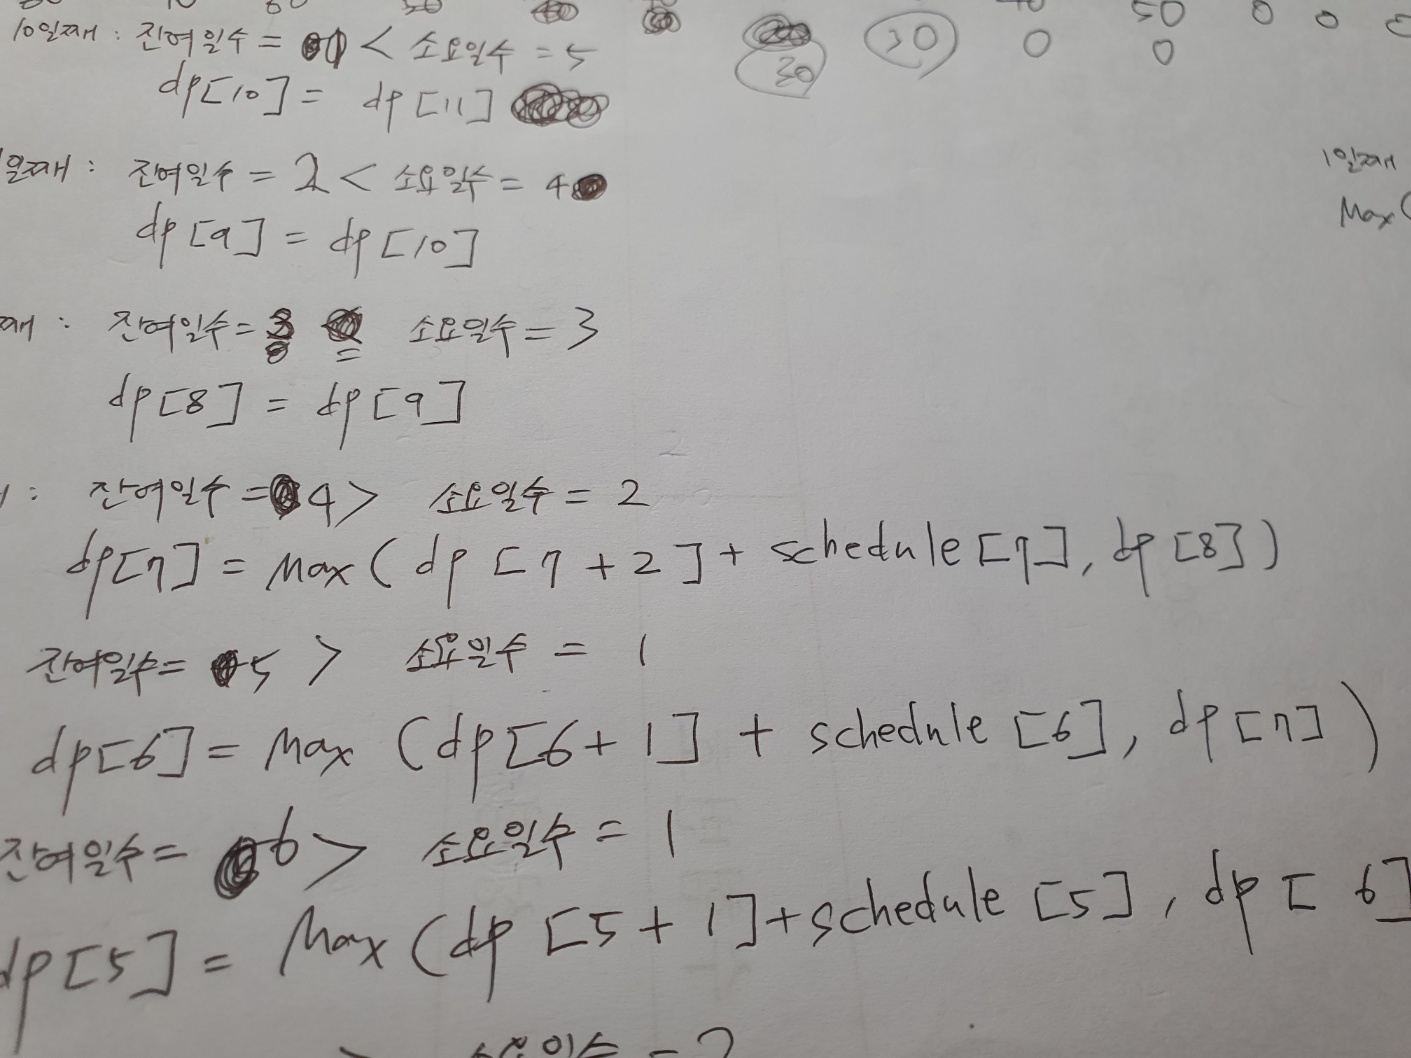 50 0 0
30 30 0 0
10일째 : 잔여일수 = 1 < 소요일수 = 5
dp[10] = dp[11]
일째 : 잔여일수 = 2 < 소요일수 = 4
dp[9] = dp[10]
째 : 잔여일수 = 3 = 소요일수 = 3
dp[8] = dp[9]
: 잔여일수 = 4 > 소요일수 = 2
dp[7] = Max(dp[7+2] + schedule[7], dp[8])
잔여일수 = 5 > 소요일수 = 1
dp[6] = Max(dp[6+1] + schedule[6], dp[7])
잔여일수 = 6 > 소요일수 = 1
dp[5] = Max(dp[5+1]+schedule[5], dp[6]
1일째
Max(